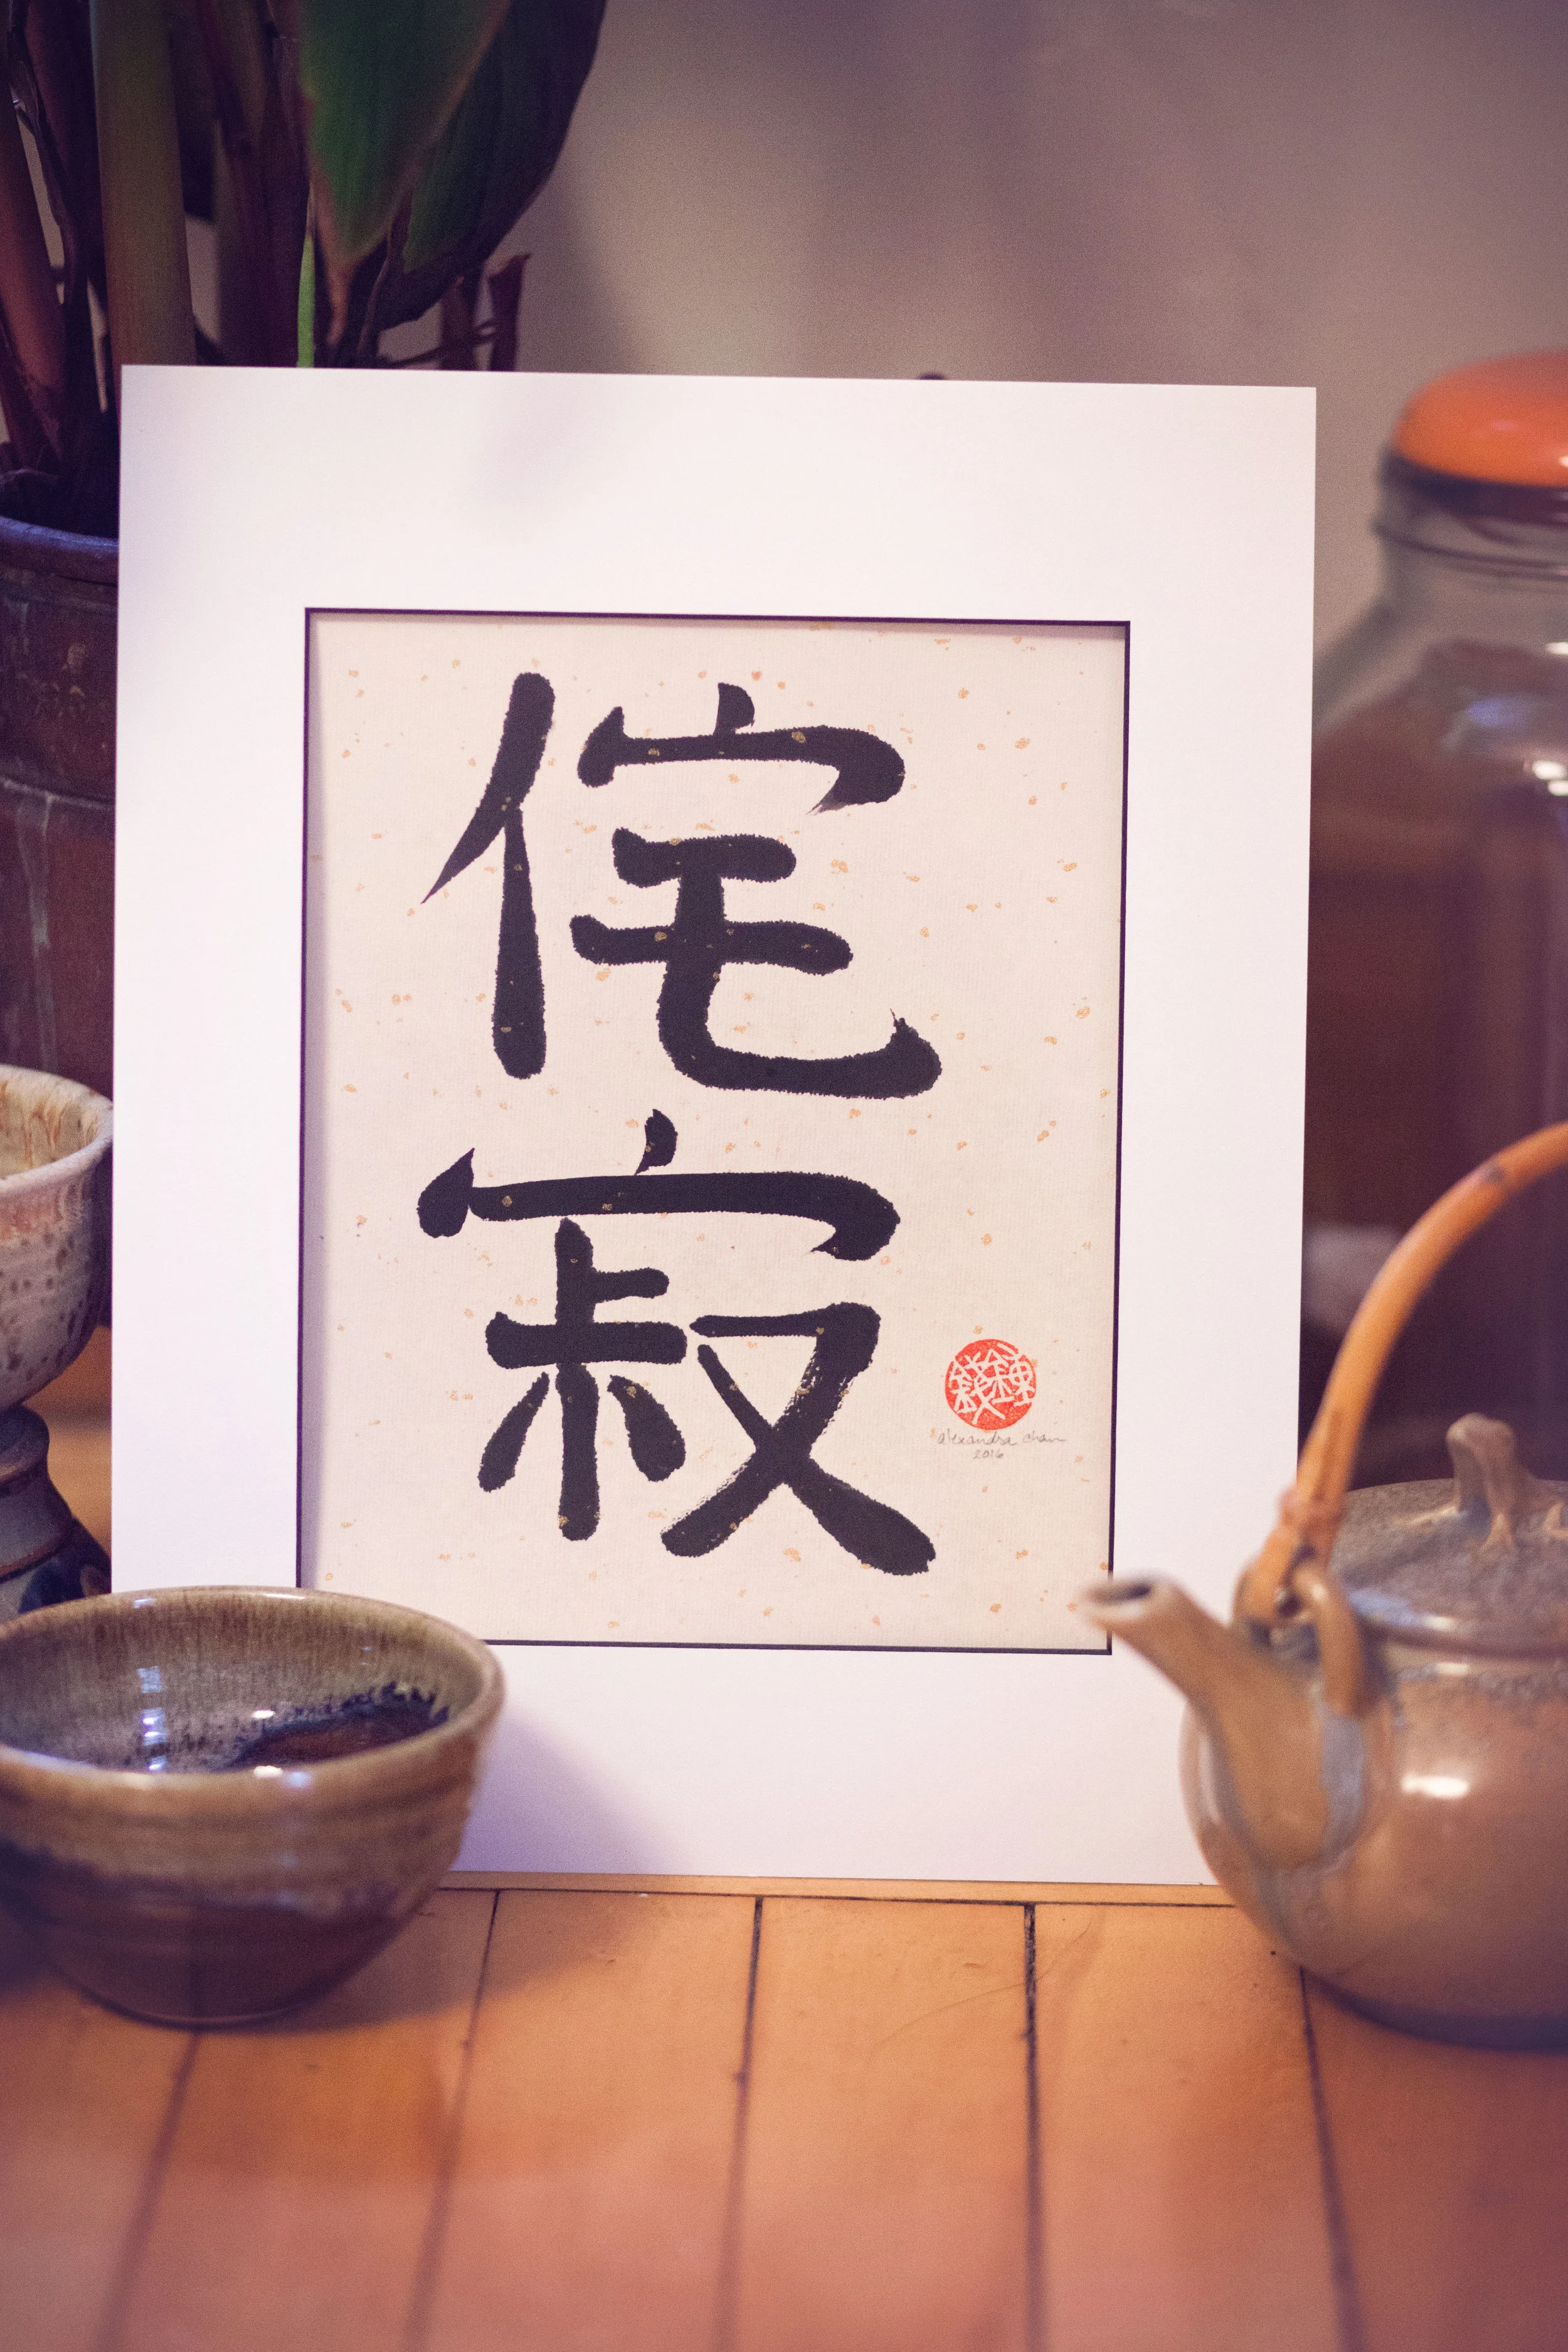 侘
寂
alexandra chan
2016